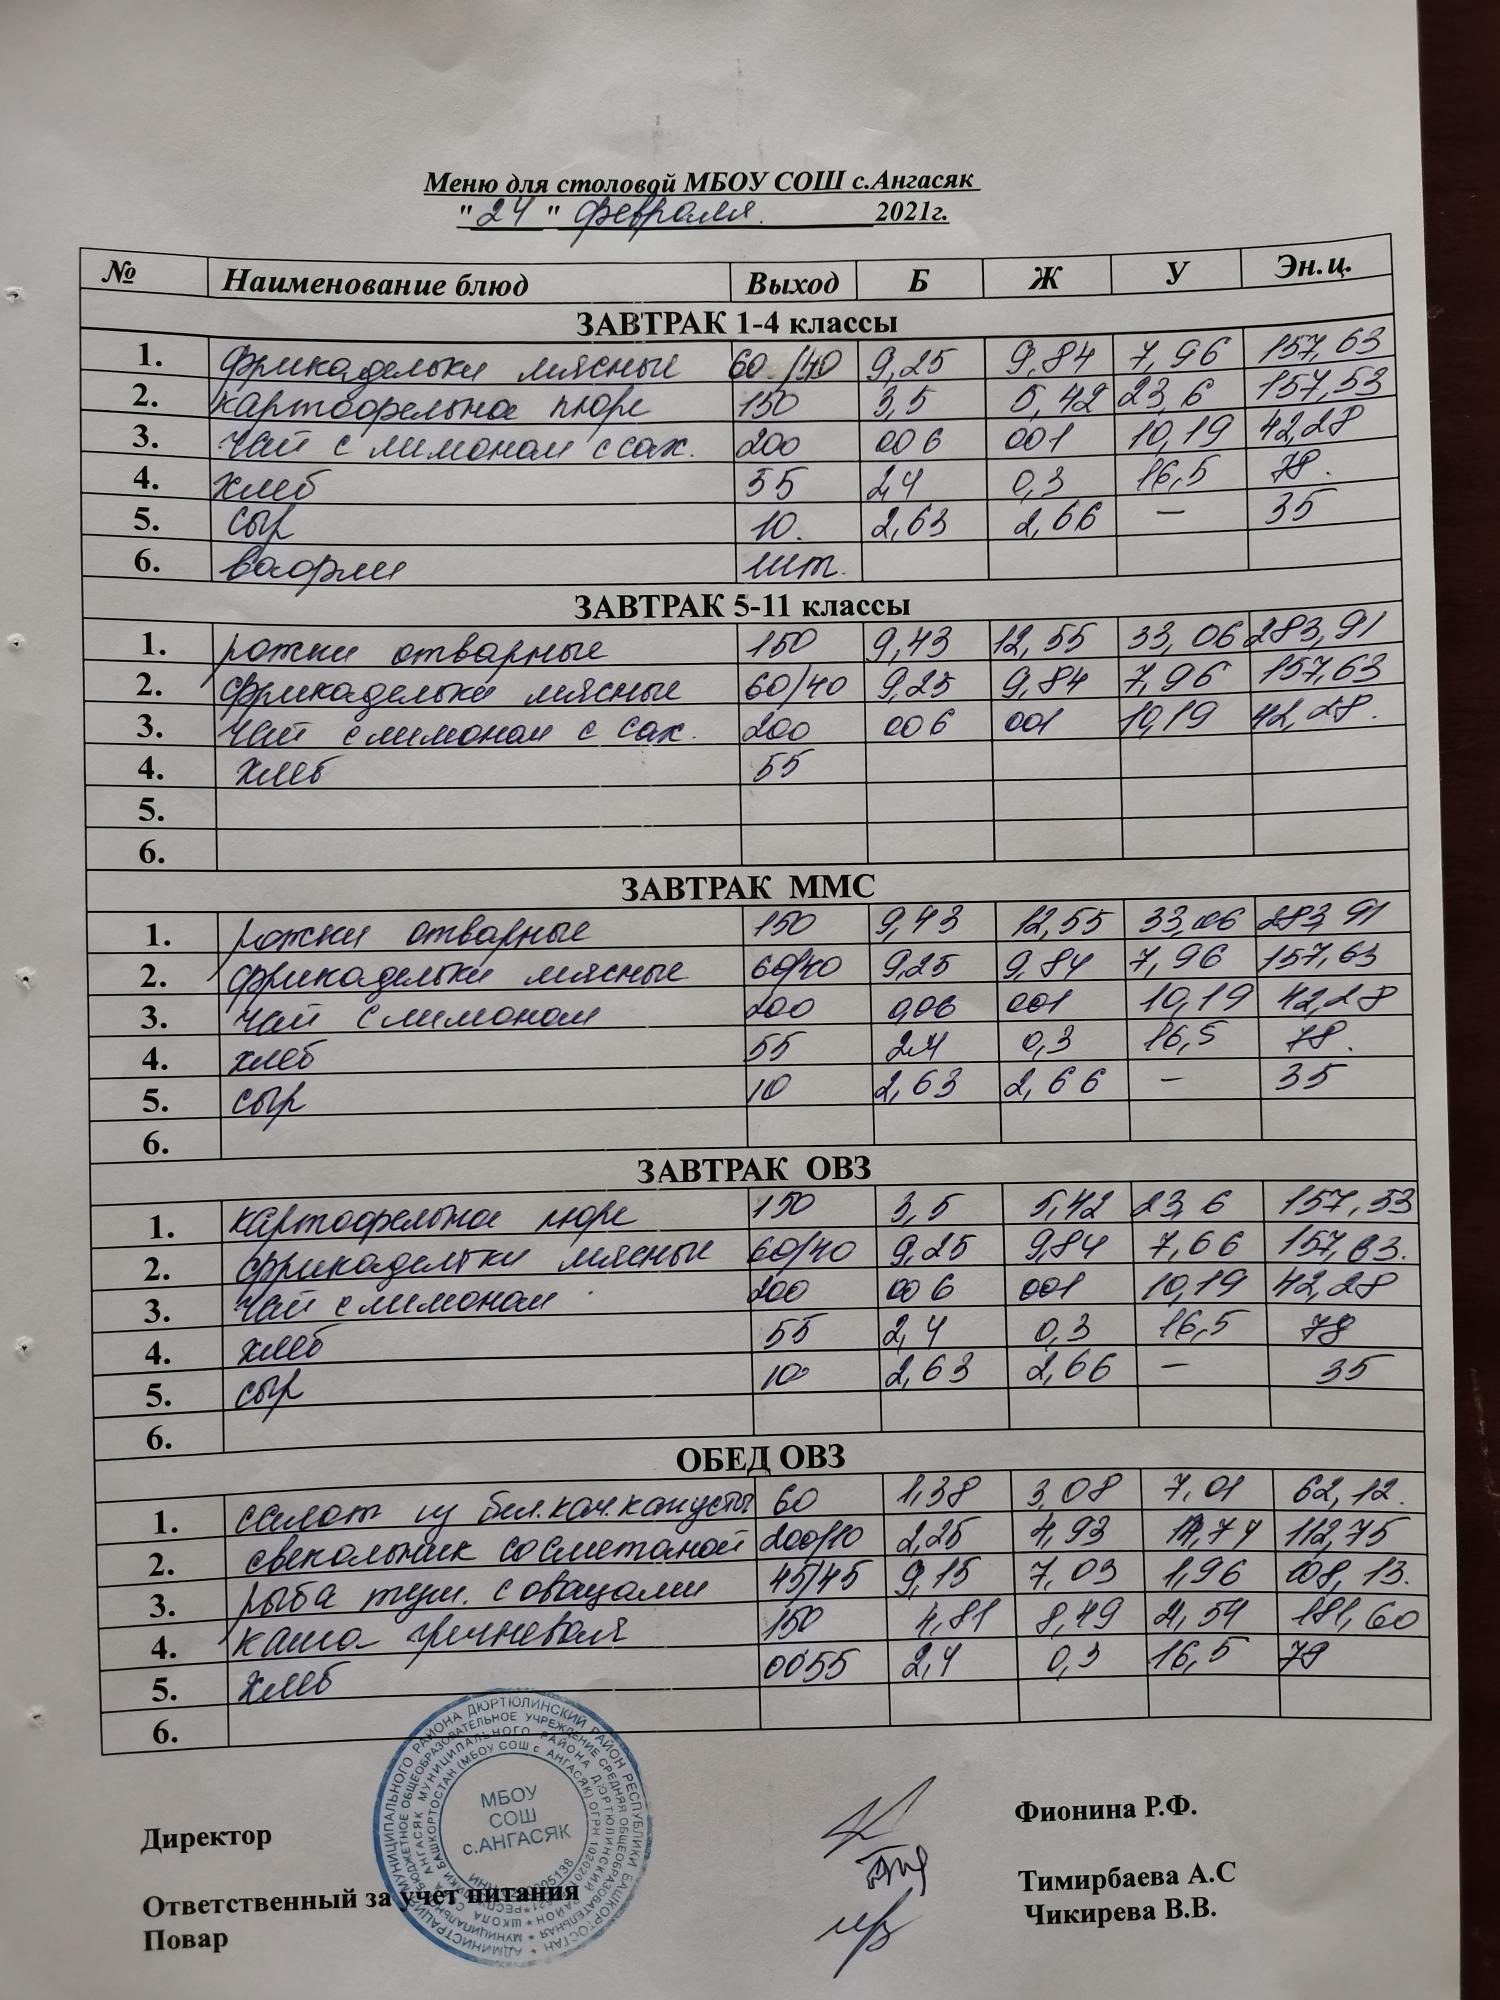 Меню для столовой МБОУ СОШ с.Ангасяк
"24" февраля. 2021г.
№ Наименование блюд Выход Б Ж У Эн.ц.
ЗАВТРАК 1-4 классы
1. фрикадельки мясные 60/40 9,25 9,84 7,96 157,63
2. картофельное пюре 150 3,5 5,42 23,6 157,53
3. чай с лимоном с сах. 200 006 001 10,19 42,28
4. хлеб 55 2,4 0,3 16,5 78.
5. сыр 10. 2,63 2,66 — 35
6. вафли 1шт.
ЗАВТРАК 5-11 классы
1. рожки отварные 150 9,43 12,55 33,06 283,91
2. фрикадельки мясные 60/40 9,25 9,84 7,96 157,63
3. чай с лимоном с сах. 200 006 001 10,19 42,28.
4. хлеб 55
5.
6.
ЗАВТРАК ММС
1. рожки отварные 150 9,43 12,55 33,06 283,91
2. фрикадельки мясные 60/40 9,25 9,84 7,96 157,63
3. чай с лимоном 200 006 001 10,19 42,28
4. хлеб 55 2,4 0,3 16,5 78.
5. сыр 10 2,63 2,66 — 35
6.
ЗАВТРАК ОВЗ
1. картофельное пюре 150 3,5 5,42 23,6 157,53
2. фрикадельки мясные 60/40 9,25 9,84 7,66 157,63.
3. чай с лимоном 200 006 001 10,19 42,28
4. хлеб 55 2,4 0,3 16,5 78
5. сыр 10 2,63 2,66 — 35
6.
ОБЕД ОВЗ
1. салат из бел.кач.капусты 60 1,38 3,08 7,01 62,12.
2. свекольник со сметаной 200/10 2,25 4,93 112,75
3. рыба туш. с овощами 45/45 9,15 7,03 1,96 108,13.
4. каша гречневая 150 4,81 8,49 181,60
5. хлеб 0055 2,4 0,3 16,5 78
6.
МБОУ
СОШ
с.АНГАСЯК
Директор Фионина Р.Ф.
Ответственный за учет питания Тимирбаева А.С
Повар Чикирева В.В.